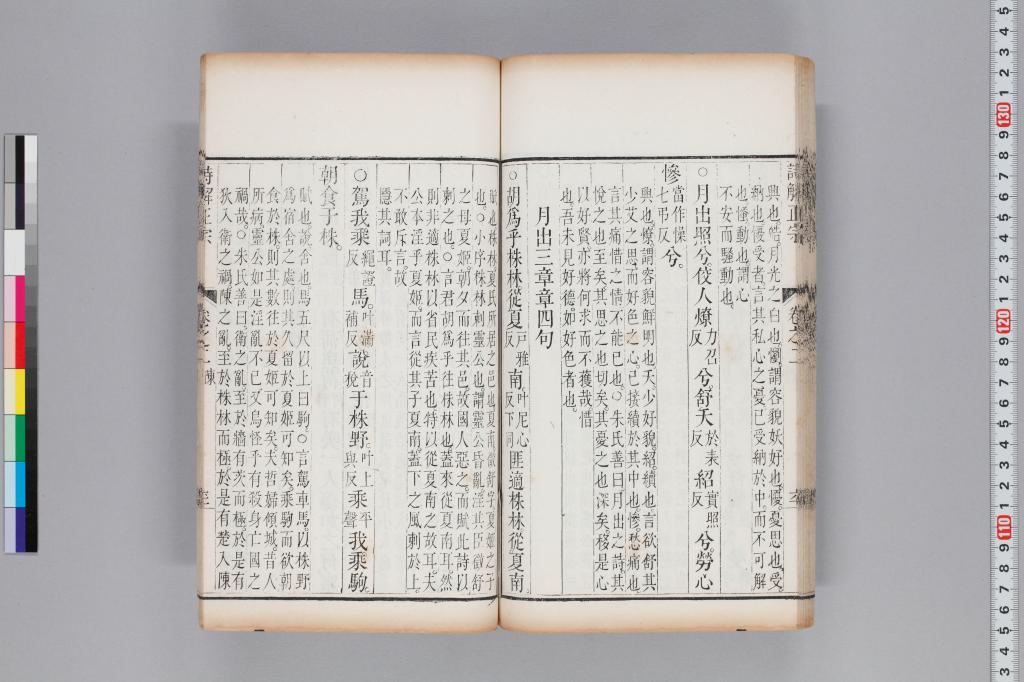 興也皓月光之白也懰謂容貌妖好也慢憂思也受
納也懮受者言其私心之憂已受納於中而不可解
也慅動也謂心
不安而騷動也
○月出照兮佼人燎力召反兮舒夭於表反紹實照反兮勞心
慘當作懆七弔反兮
興也燎謂容貌鮮明也夭少好貌紹續也言欲舒其
少艾之思而好色之心已接續於其中也慘愁痛也
言其痛惜之情不能已也○朱氏善曰月出之詩其
悅之也至矣其思之也切矣其憂之也深矣移是心
以好賢亦將何求而不獲哉惜
也吾未見好德如好色者也
月出三章章四句
○胡爲乎株林從夏戶雅反南叶尼心反下同匪適株林從夏南
賦也株林夏氏所居之邑也夏南徵舒字夏姬之子
也○小序株林刺靈公也謂靈公昏亂淫其臣徵舒
之母夏姬朝夕而往其邑故國人惡之而賦此詩以
刺之也○言君胡爲乎往株林也蓋來從夏南耳然
則非適株林以省民疾苦也特以從夏南之故耳夫
公本淫乎夏姬而言從其子夏南蓋下之風刺於上
不敢斥言故
隱其詞耳
○駕我乘繩證反馬叶滿補反說音稅于株野叶上與反乘平聲我乘駒
朝食于株
賦也說舍也馬五尺以上曰駒○言駕車馬以株野
爲宿舍之處則其久留於夏姬可知矣乘駒而欲朝
食於株則其數往於夏姬可知矣夫哲婦傾城昔人
所病靈公如是淫亂不已又烏怪乎有殺身亡國之
禍哉○朱氏善曰衛之亂至於牆有茨而極於是有
狄入衛之禍陳之亂至於株林而極於是有楚入陳
詩解正宗
卷之二
陳